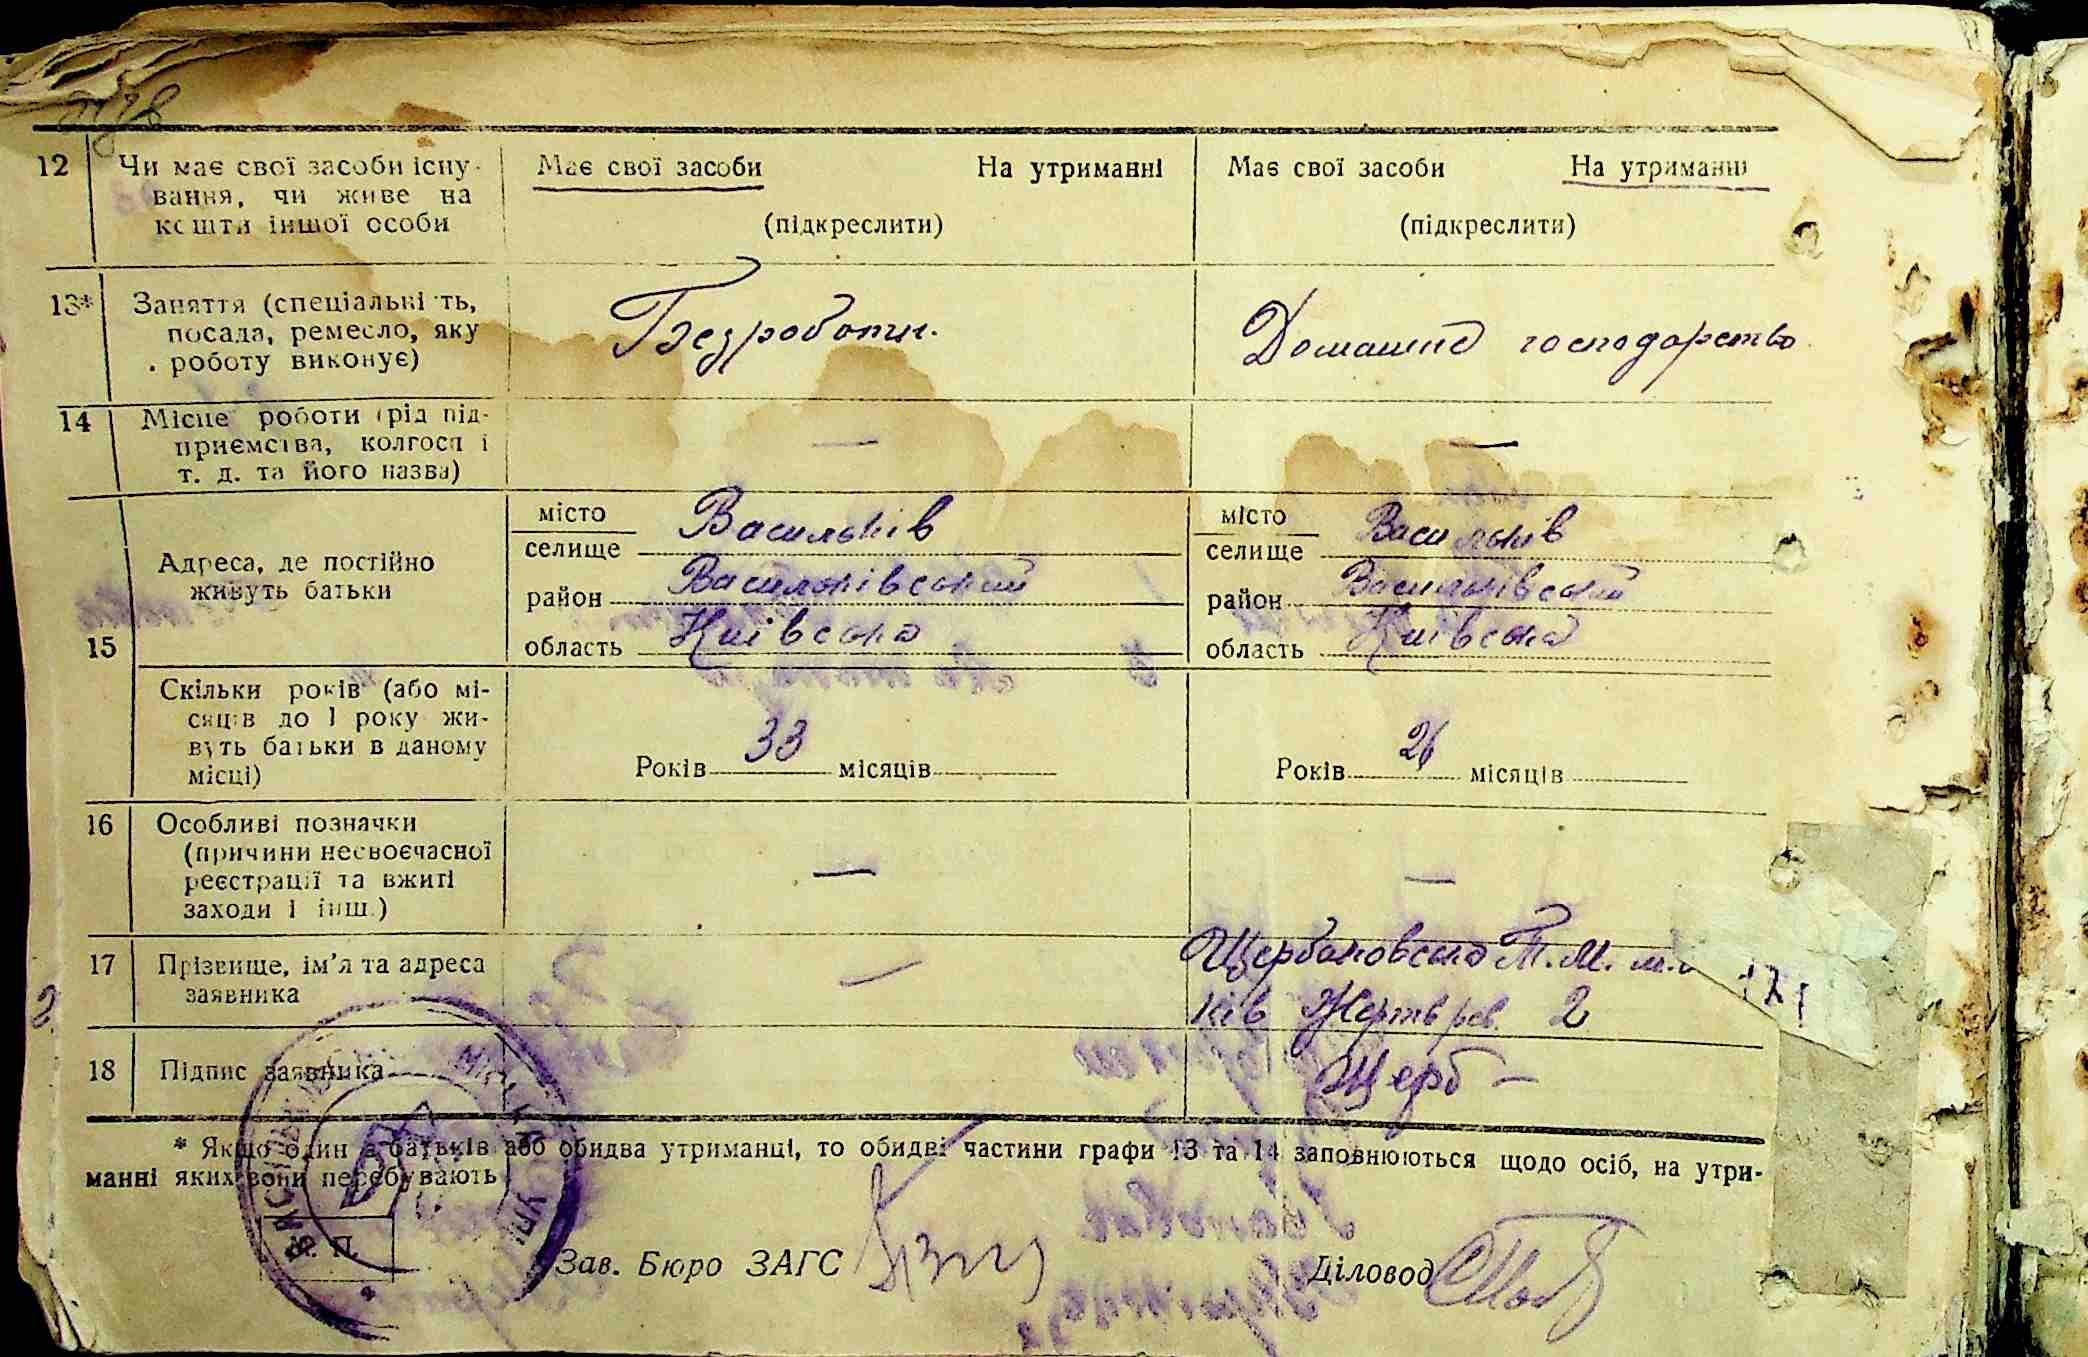 12 Чи має свої засоби існу- Має свої засоби На утриманні Має свої засоби На утриманні
вання, чи живе на
кошти іншої особи (підкреслити) (підкреслити)
13* Заняття (спеціальність,
посада, ремесло, яку Безработн. Домашнє господарство
роботу виконує)
14 Місце роботи (рід під-
приємства, колгосп і — —
т. д. та його назва)
місто Васильків місто Васильків
селище селище
15 Адреса, де постійно
живуть батьки район Васильківський район Васильківський
область Київська область Київська
Скільки років (або мі-
сяців до 1 року жи-
вуть батьки в даному
місці) Років 33 місяців Років 26 місяців
16 Особливі позначки
(причини несвоєчасної
реєстрації та вжиті — —
заходи і інш.)
17 Прізвище, ім'я та адреса — Щербаковська Т. М. м.
заявника ків Жертв рев. 2
18 Підпис заявника Щерб —
* Якщо один з батьків або обидва утриманці, то обидві частини графи 13 та 14 заповнюються щодо осіб, на утри-
манні яких вони перебувають
М. П.
Зав. Бюро ЗАГС Діловод